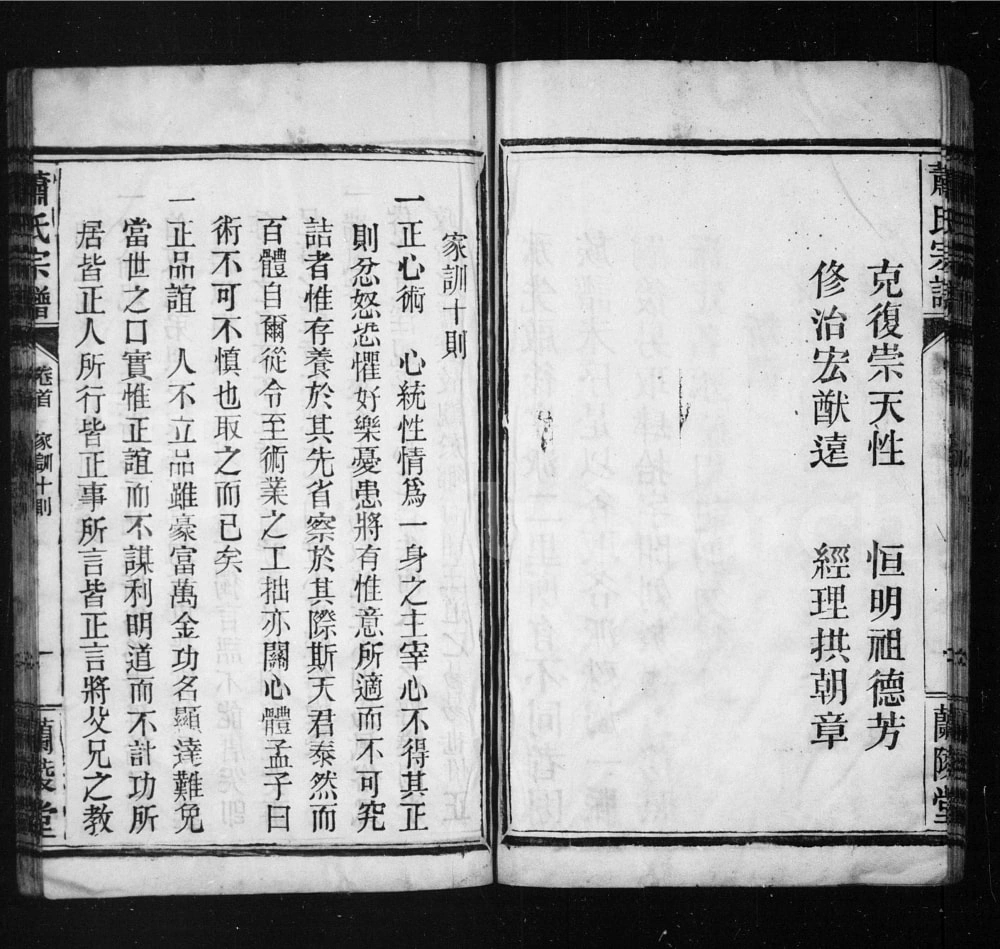 蕭氏宗譜
蘭陵堂
克復崇天性　恒明祖德芳
修治宏猷遠　經理拱朝章
家訓十則
一正心術　心統性情爲一身之主宰心不得其正
則忿怒恐懼好樂憂患將有惟意所適而不可究
詰者惟存養於其先省察於其際斯天君泰然而
百體自爾從令至術業之工拙亦關心體孟子曰
術不可不慎也取之而已矣
一正品誼　人不立品雖豪富萬金功名顯達難免
當世之口實惟正誼而不謀利明道而不計功所
居皆正人所行皆正事所言皆正言將父兄之教
蕭氏宗譜
卷首　家訓十則
一
蘭陵堂